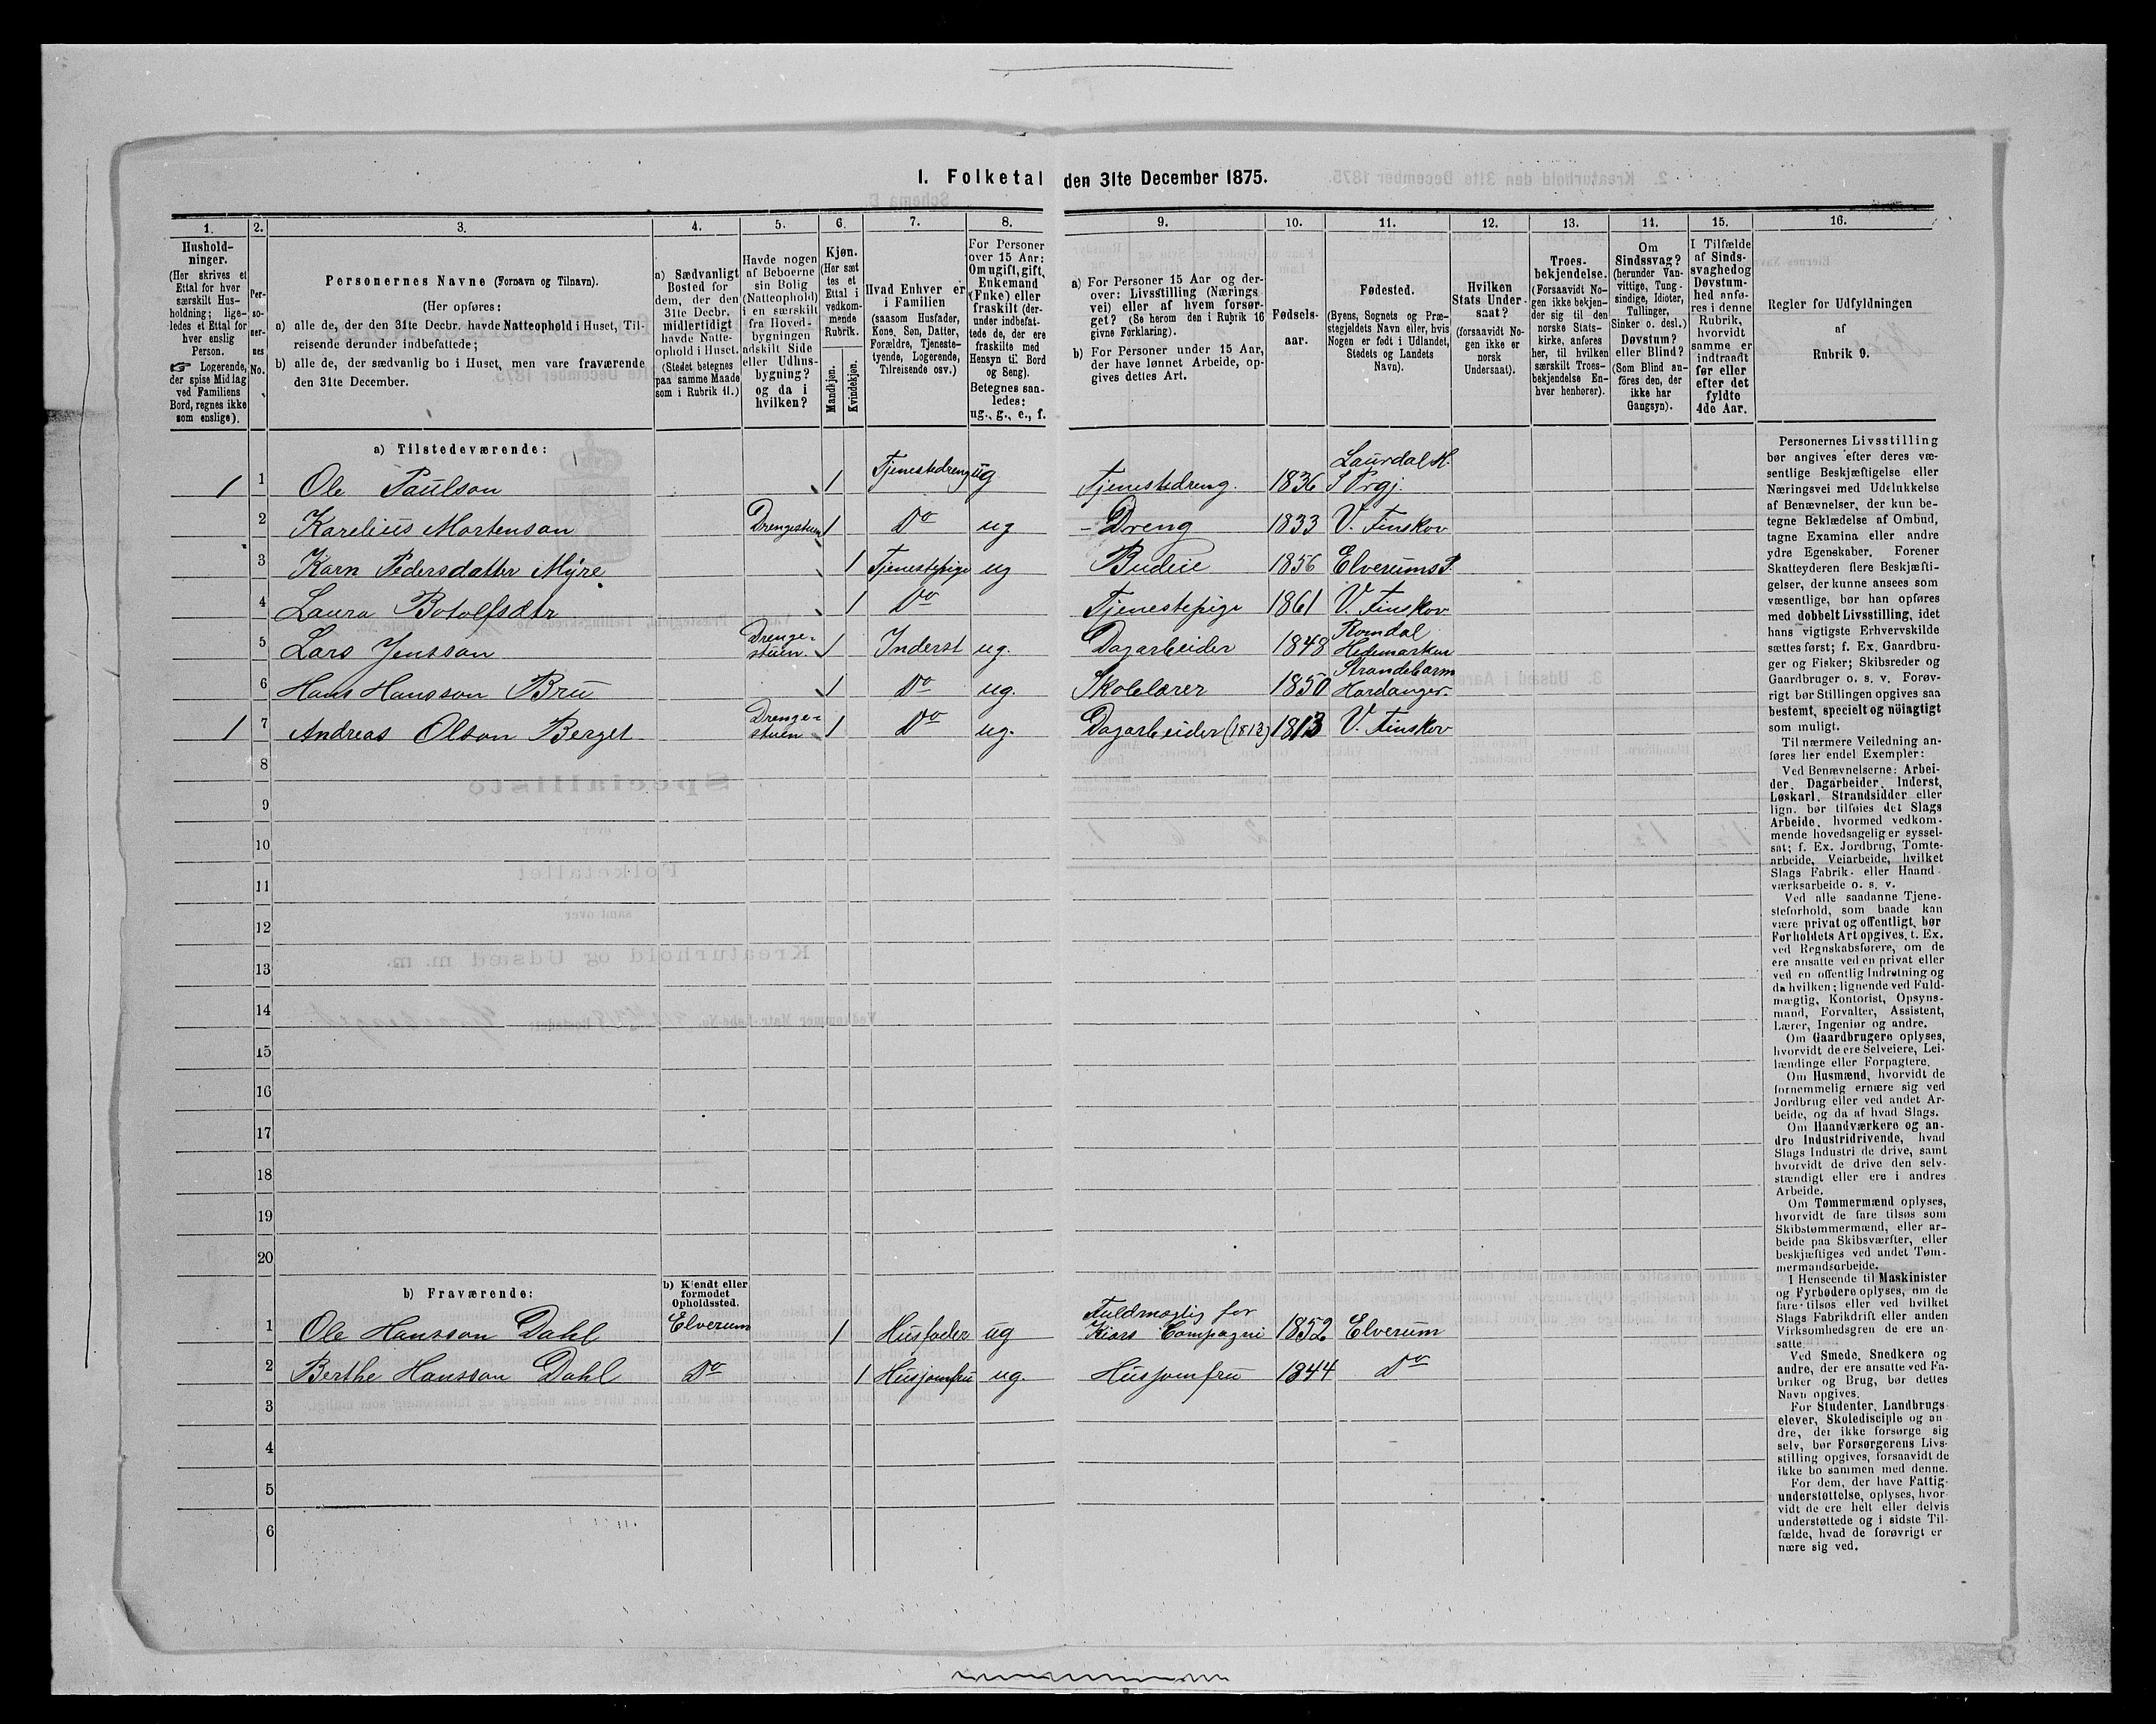 I. Folketal den 31te December 1875.
1. 2. 3. 4. 5. 6. 7. 8. 9. 10. 11. 12. 13. 14. 15. 16.
Hushold-
ninger.
(Her skrives et
Ettal for hver
særskilt Hus-
holdning; lige-
ledes et Ettal for
hver enslig
Person.
☞ Logerende,
der spise Middag
ved Familiens
Bord, regnes ikke
som enslige).
Per-
so-
ner-
nes
No.
Personernes Navne (Fornavn og Tilnavn).
(Her opføres:
a) alle de, der den 31te Decbr. havde Natteophold i Huset, Til-
reisende derunder indbefattede;
b) alle de, der sædvanlig bo i Huset, men vare fraværende
den 31te December.
a) Sædvanligt
Bosted for
dem, der den
31te Decbr.
midlertidigt
havde Natte-
ophold i Huset.
(Stedet betegnes
paa samme Maade
som i Rubrik 11.)
Havde nogen
af Beboerne
sin Bolig
(Natteophold)
i en særskilt
fra Hoved-
bygningen
adskilt Side
eller Udhus-
bygning?
og da i
hvilken?
Kjøn.
(Her sæt
tes et
Ettal i
vedkom-
mende
Rubrik.
Mandkjøn.
Kvindekjøn.
Hvad Enhver er
i Familien
(saasom Husfader,
Kone, Søn, Datter,
Forældre, Tjeneste-
tyende, Logerende,
Tilreisende osv.)
For Personer
over 15 Aar:
Om ugift, gift,
Enkemand
(Enke) eller
fraskilt (der-
under indbefat-
tede, der ere
fraskilte med
Hensyn til Bord
og Seng).
Betegnes saa-
ledes:
ug., g., e., f.
a) For Personer 15 Aar og der-
over: Livsstilling (Nærings
vei) eller af hvem forsør-
get? (Se herom den i Rubrik 16
givne Forklaring).
b) For Personer under 15 Aar,
der have lønnet Arbeide, op-
gives dettes Art.
Fødsels-
aar.
Fødested.
(Byens, Sognets og Præ-
stegjeldets Navn eller, hvis
Nogen er født i Udlandet,
Stedets og Landets
Navn).
Hvilken
Stats Under-
saat?
(forsaavidt No-
gen ikke er
norsk
Undersaat).
Troes-
bekjendelse.
(Forsaavidt No-
gen ikke bekjen-
der sig til den
norske Stats-
kirke, anføres
her, til hvilken
særskilt Troes-
bekjendelse En-
hver henhører).
Om
Sindssvag?
(herunder Van-
vittige, Tung-
sindige, Idioter,
Tullinger,
Sinker o. desl.)
Døvstum?
eller Blind?
(Som Blind an-
føres den, der
ikke har
Gangsyn).
I Tilfælde
af Sinds-
svaghed og
Døvstum-
hed anfø-
res i denne
Rubrik,
hvorvidt
samme er
indtraadt
før eller
efter det
fyldte
4de Aar.
Regler for Udfyldningen
af
Rubrik 9.
a) Tilstedeværende:
1 1 Ole Paulson 1 Tjenestedreng ug Tjenestedreng. 1836 Laurdal H. S Prgj.
2 Karelius Mortenson Drengestuen 1 Do ug - Dreng 1833 V. Finskov
3 Karn Pedersdatter Myre 1 Tjenestepige ug Budeie 1856 Elverums P.
4 Laura Botolfsdtr 1 Do Tjenestepige 1861 V. Finskov
5 Lars Jensson Drenge-stuen 1 Inderst ug. Dagarbeider 1848 Romdal Hedemarken
6 Hans Hansson Bru 1 Do ug. Skolelærer 1850 Strandebarm Hardanger
1 7 Andreas Olson Berget Drenge-stuen 1 Do ug. Dagarbeider (1813) 1813 V. Finskov
8
9
10
11
12
13
14
15
16
17
18
19
20
b) Fraværende:
b) Kjendt eller
formodet
Opholdssted.
1 Ole Hansson Dahl Elverum 1 Husfader ug Fuldmægtig for Kiærs Compagni 1852 Elverum
2 Berthe Hansson Dahl Do 1 Husjomfru ug. Husjomfru 1844 Do
3
4
5
6
Personernes Livsstilling
bør angives efter deres væ-
sentlige Beskjæftigelse eller
Næringsvei med Udelukkelse
af Benævnelser, der kun be-
tegne Beklædelse af Ombud,
tagne Examina eller andre
ydre Egenskaber. Forener
Skatteyderen flere Beskjæfti-
gelser, der kunne ansees som
væsentlige, bør han opføres
med dobbelt Livsstilling, idet
hans vigtigste Erhvervskilde
sættes først; f. Ex. Gaardbru-
ger og Fisker; Skibsreder og
Gaardbruger o. s. v. Forøv-
rigt bør Stillingen opgives saa
bestemt, specielt og nöiagtigt
som muligt.
Til nærmere Veiledning an-
føres her endel Exempler:
Ved Benævnelserne: Arbei-
der, Dagarbeider, Inderst,
Løskarl, Strandsidder eller
lign. bør tilføies det Slags
Arbeide, hvormed vedkom-
mende hovedsagelig er syssel-
sat; f. Ex. Jordbrug, Tomte-
arbeide, Veiarbeide, hvilket
Slags Fabrik- eller Haand-
værksarbeide o. s. v.
Ved alle saadanne Tjene-
steforhold, som baade kan
være privat og offentligt, bør
Forholdets Art opgives, t. Ex.
ved Regnskabsførere, om de
ere ansatte ved en privat eller
ved en offentlig Indretning og
da hvilken; lignende ved Fuld-
mægtig, Kontorist, Opsyns-
mand, Forvalter, Assistent,
Lærer, Ingeniør og andre.
Om Gaardbrugere oplyses,
hvorvidt de ere Selveiere, Lei-
lændinge eller Forpagtere.
Om Husmænd, hvorvidt de
fornemmelig ernære sig ved
Jordbrug eller ved andet Ar-
beide, og da af hvad Slags.
Om Haandværkere og an-
dre Industridrivende, hvad
Slags Industri de drive, samt
hvorvidt de drive den selv-
stændigt eller ere i andres
Arbeide.
Om Tømmermænd oplyses,
hvorvidt de fare tilsøs som
Skibstømmermænd, eller ar-
beide paa Skibsværfter, eller
beskjæftiges ved andet Tøm-
mermandsarbeide.
I Henseende til Maskinister
og Fyrbødere oplyses, om de
fare tilsøs eller ved hvilket
Slags Fabrikdrift eller anden
Virksomhedsgren de ere an-
satte.
Ved Smede, Snedkere og
andre, der ere ansatte ved Fa-
briker og Brug, bør dettes
Navn opgives.
For Studenter, Landbrugs-
elever, Skoledisciple og an-
dre, der ikke forsørge sig
selv, bør Forsørgerens Livs-
stilling opgives, forsaavidt de
ikke bo sammen med denne.
For dem, der have Fattig-
understøttelse, oplyses, hvor-
vidt de ere helt eller delvis
understøttede og i sidste Til-
fælde, hvad de forøvrigt er
nære sig ved.